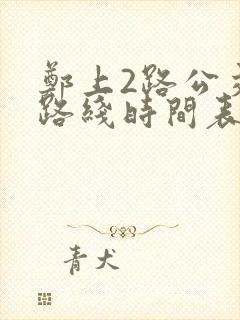 鄭上2路公交
路綫時間表
青犬